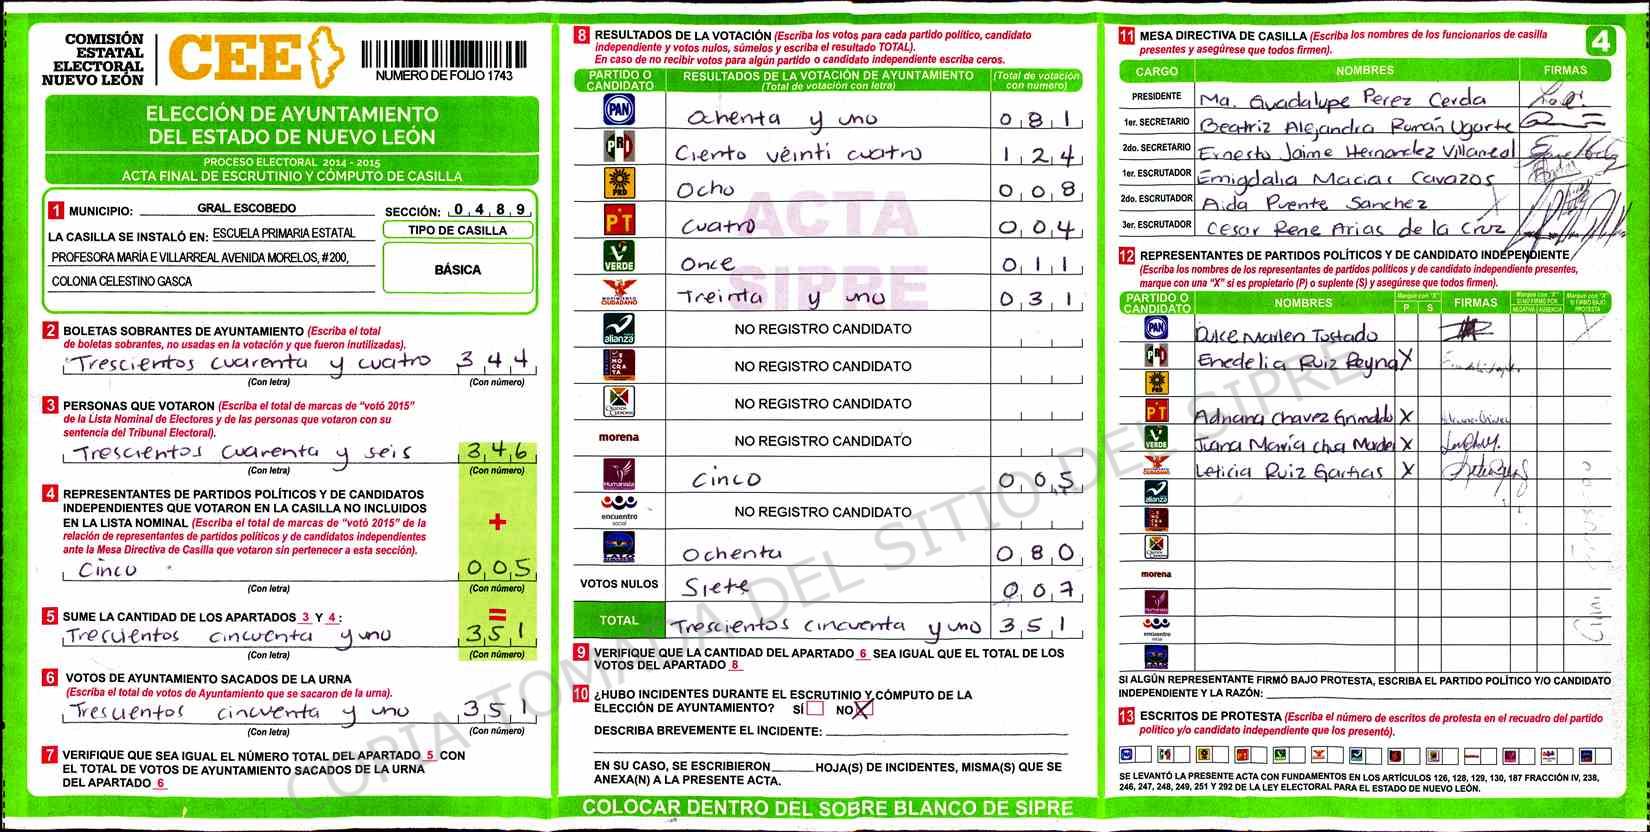 COMISIÓN
ESTATAL
ELECTORAL
NUEVO LEÓN
CEE
NUMERO DE FOLIO 1743
ELECCIÓN DE AYUNTAMIENTO
DEL ESTADO DE NUEVO LEÓN
PROCESO ELECTORAL 2014 - 2015
ACTA FINAL DE ESCRUTINIO Y CÓMPUTO DE CASILLA
1 MUNICIPIO: GRAL. ESCOBEDO SECCIÓN: 0 4 8 9
LA CASILLA SE INSTALÓ EN: ESCUELA PRIMARIA ESTATAL
PROFESORA MARÍA E VILLARREAL AVENIDA MORELOS, #200,
COLONIA CELESTINO GASCA
TIPO DE CASILLA
BÁSICA
2 BOLETAS SOBRANTES DE AYUNTAMIENTO (Escriba el total
de boletas sobrantes, no usadas en la votación y que fueron inutilizadas).
Trescientos cuarenta y cuatro 3 4 4
(Con letra) (Con número)
3 PERSONAS QUE VOTARON (Escriba el total de marcas de "votó 2015"
de la Lista Nominal de Electores y de las personas que votaron con su
sentencia del Tribunal Electoral).
Trescientos cuarenta y seis 3 4 6
(Con letra) (Con número)
4 REPRESENTANTES DE PARTIDOS POLÍTICOS Y DE CANDIDATOS
INDEPENDIENTES QUE VOTARON EN LA CASILLA NO INCLUIDOS
EN LA LISTA NOMINAL (Escriba el total de marcas de "votó 2015" de la
relación de representantes de partidos políticos y de candidatos independientes
ante la Mesa Directiva de Casilla que votaron sin pertenecer a esta sección).
+
Cinco 0 0 5
(Con letra) (Con número)
5 SUME LA CANTIDAD DE LOS APARTADOS 3 Y 4: =
Trecuientos cincuenta y uno 3 5 1
(Con letra) (Con número)
6 VOTOS DE AYUNTAMIENTO SACADOS DE LA URNA
(Escriba el total de votos de Ayuntamiento que se sacaron de la urna).
Trescuentos cincuenta y uno 3 5 1
(Con letra) (Con número)
7 VERIFIQUE QUE SEA IGUAL EL NÚMERO TOTAL DEL APARTADO 5 CON
EL TOTAL DE VOTOS DE AYUNTAMIENTO SACADOS DE LA URNA
DEL APARTADO 6
8 RESULTADOS DE LA VOTACIÓN (Escriba los votos para cada partido político, candidato
independiente y votos nulos, súmelos y escriba el resultado TOTAL).
En caso de no recibir votos para algún partido o candidato independiente escriba ceros.
PARTIDO O CANDIDATO RESULTADOS DE LA VOTACIÓN DE AYUNTAMIENTO (Total de votación con letra) (Total de votación con número)
PAN Ochenta y uno 0 8 1
PRI Ciento veinti cuatro 1 2 4
PRD Ocho 0 0 8
PT Cuatro 0 0 4
VERDE Once 0 1 1
MOVIMIENTO CIUDADANO Treinta y uno 0 3 1
alianza NO REGISTRO CANDIDATO
NO REGISTRO CANDIDATO
NO REGISTRO CANDIDATO
morena NO REGISTRO CANDIDATO
Humanista Cinco 0 0 5
encuentro social NO REGISTRO CANDIDATO
Ochenta 0 8 0
VOTOS NULOS Siete 0 0 7
TOTAL Trescientos cincuenta y uno 3 5 1
ACTA
SIPRE
9 VERIFIQUE QUE LA CANTIDAD DEL APARTADO 6 SEA IGUAL QUE EL TOTAL DE LOS
VOTOS DEL APARTADO 8
10 ¿HUBO INCIDENTES DURANTE EL ESCRUTINIO Y CÓMPUTO DE LA
ELECCIÓN DE AYUNTAMIENTO? SÍ NO X
DESCRIBA BREVEMENTE EL INCIDENTE:
EN SU CASO, SE ESCRIBIERON HOJA(S) DE INCIDENTES, MISMA(S) QUE SE
ANEXA(N) A LA PRESENTE ACTA.
COLOCAR DENTRO DEL SOBRE BLANCO DE SIPRE
11 MESA DIRECTIVA DE CASILLA (Escriba los nombres de los funcionarios de casilla
presentes y asegúrese que todos firmen).
4
CARGO NOMBRES FIRMAS
PRESIDENTE Ma. Guadalupe Perez Cerda
1er. SECRETARIO Beatriz Alejandra Román Ugarte
2do. SECRETARIO Ernesto Jaime Hernandez Villarreal
1er. ESCRUTADOR Emigdalia Macias Cavazos
2do. ESCRUTADOR Aida Puente Sanchez
3er. ESCRUTADOR Cesar Rene Arias de la Cruz
12 REPRESENTANTES DE PARTIDOS POLÍTICOS Y DE CANDIDATO INDEPENDIENTE
(Escriba los nombres de los representantes de partidos políticos y de candidato independiente presentes,
marque con una "X" si es propietario (P) o suplente (S) y asegúrese que todos firmen).
PARTIDO O CANDIDATO NOMBRES Marque con "X" P S FIRMAS Marque con "X" SI NO FIRMÓ POR: NEGATIVA AUSENCIA Marque con "X" SI FIRMÓ BAJO PROTESTA
PAN Dulce Marlen Tostado
PRI Enedelia Ruiz Reyna X
PRD
PT Adriana Chavez Grimaldo X
VERDE Juana María X
Leticia Ruiz X
alianza
morena
SI ALGÚN REPRESENTANTE FIRMÓ BAJO PROTESTA, ESCRIBA EL PARTIDO POLÍTICO Y/O CANDIDATO
INDEPENDIENTE Y LA RAZÓN:
13 ESCRITOS DE PROTESTA (Escriba el número de escritos de protesta en el recuadro del partido
político y/o candidato independiente que los presentó).
SE LEVANTÓ LA PRESENTE ACTA CON FUNDAMENTOS EN LOS ARTÍCULOS 126, 128, 129, 130, 187 FRACCIÓN IV, 238,
246, 247, 248, 249, 251 Y 292 DE LA LEY ELECTORAL PARA EL ESTADO DE NUEVO LEÓN.
COPIA TOMADA DEL SITIO DEL SIPRE